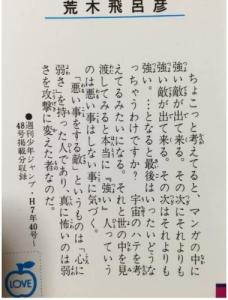 荒木飛呂彦
ちょこっと考えてると、マンガの中に
強い敵が出て来る。その次にそれよりも
強い敵が出て来る。その次はそれよりも
強い。…となると最後はいったいどうな
っちゃうわけですか？　宇宙のハテを考
えてるみたいになる。それと世の中を見
渡してみると本当に『強い』人っていう
のは悪い事はしない事に気づく。
「悪い事をする敵」というものは「心に
弱さ」を持った人であり、真に怖いのは弱
さを攻撃に変えた者なのだ。
●週刊少年ジャンプ・H７年40号〜
48号掲載分収録
LOVE